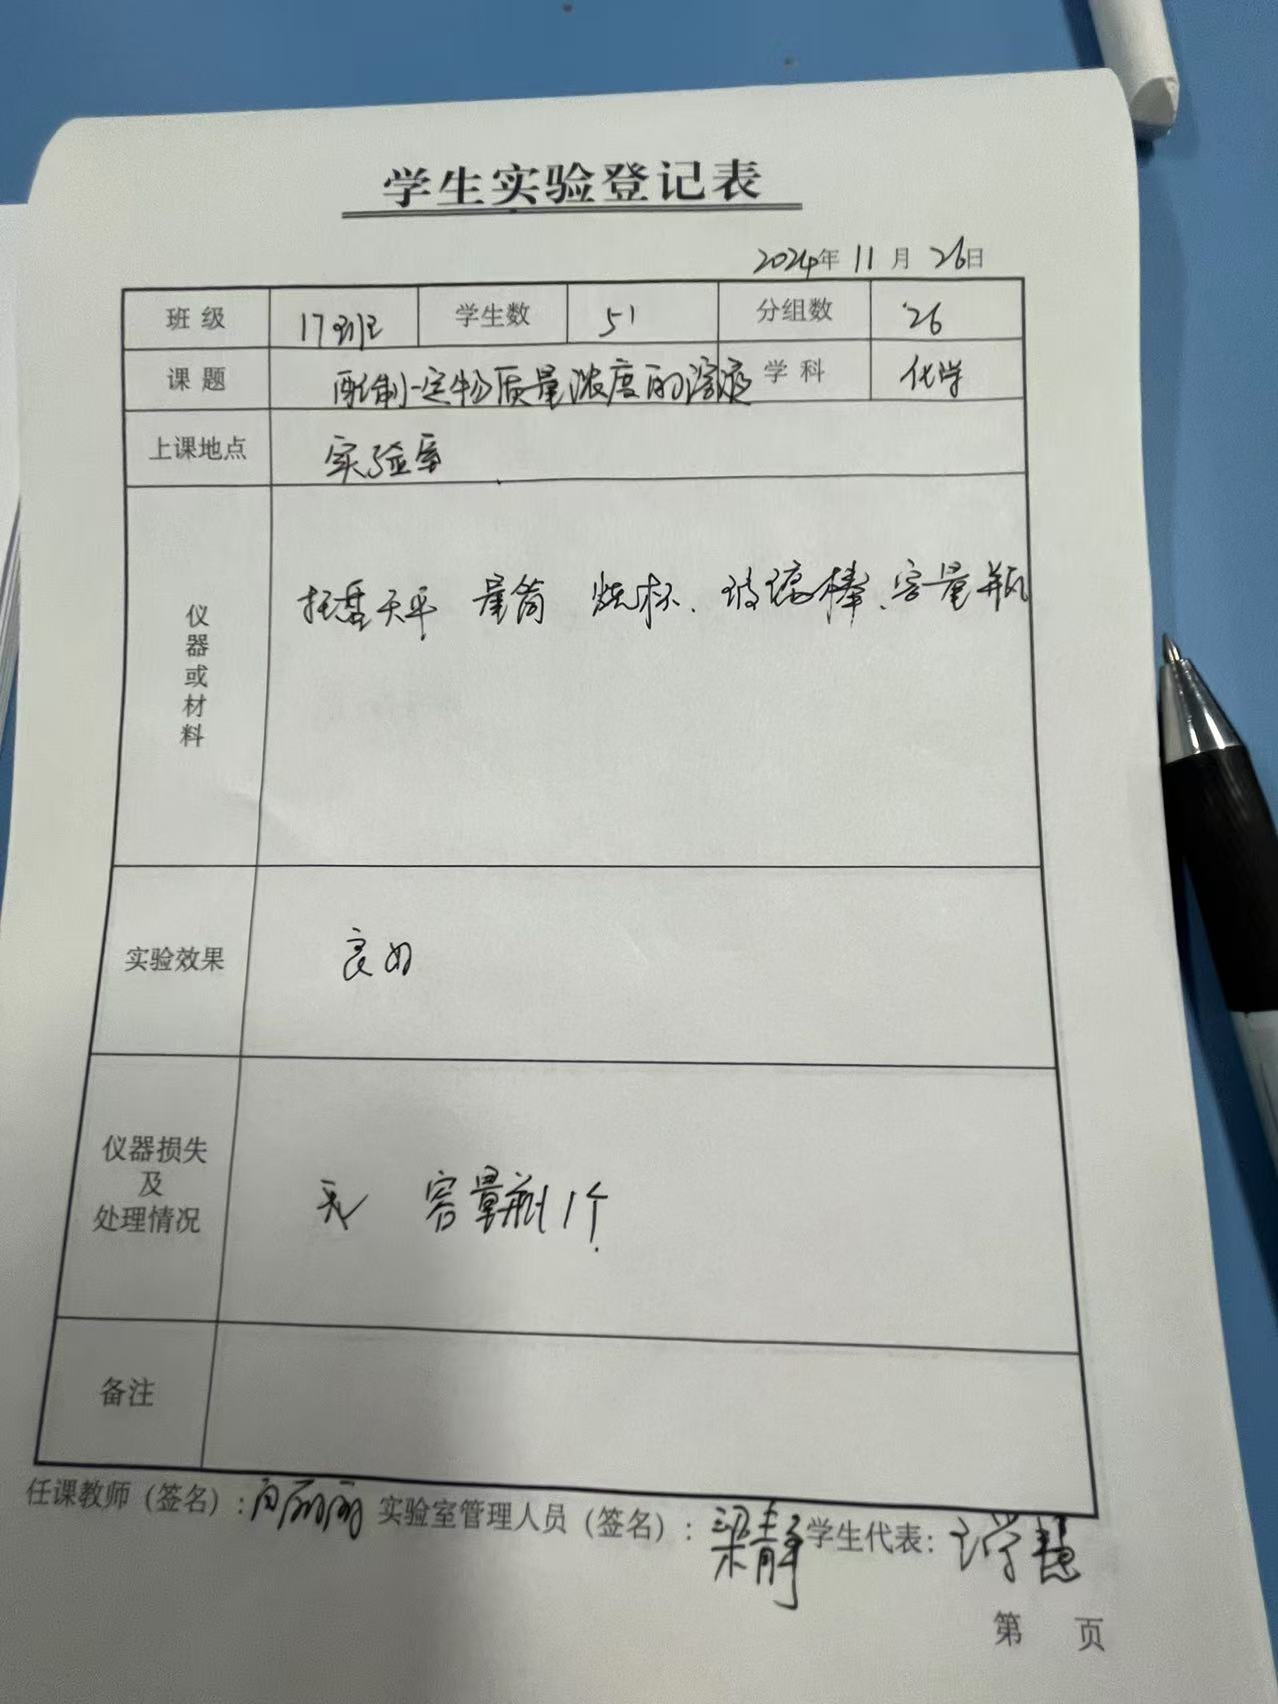 学生实验登记表
2024年 11月 26日
班级 17班 学生数 51 分组数 26
课题 配制一定物质量浓度的溶液 学科 化学
上课地点 实验室
仪器或材料 托盘天平 量筒 烧杯、玻璃棒、容量瓶
实验效果 良好
仪器损失及处理情况 无 容量瓶1个.
备注
任课教师（签名）: 丽丽 实验室管理人员（签名）: 梁静 学生代表:
第 页